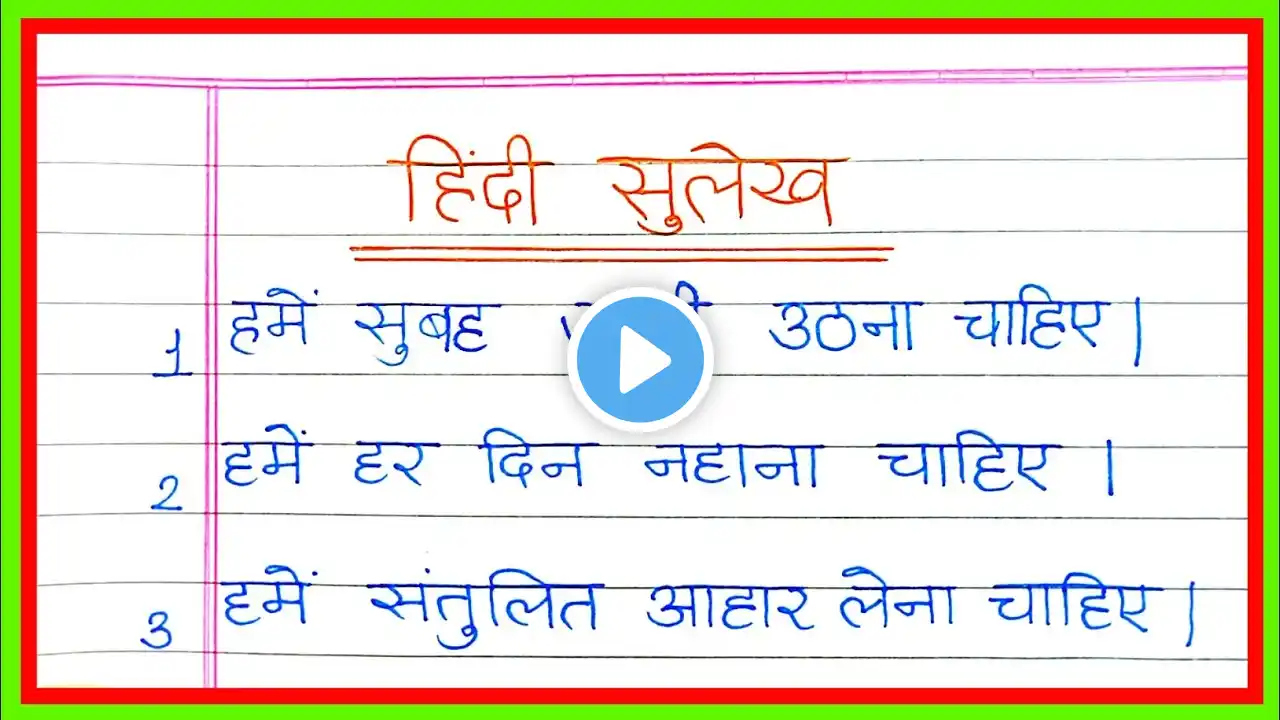 हिंदी सुलेख
1 हमें सुबह उठना चाहिए।
2 हमें हर दिन नहाना चाहिए।
3 हमें संतुलित आहार लेना चाहिए।